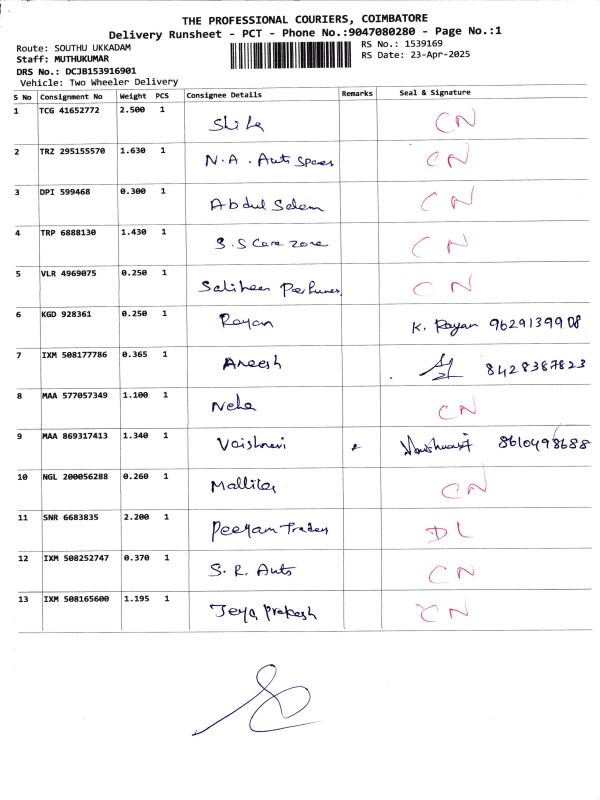 THE PROFESSIONAL COURIERS, COIMBATORE
Delivery Runsheet - PCT - Phone No.:9047080280 - Page No.:1
Route: SOUTHU UKKADAM
RS No.: 1539169
Staff: MUTHUKUMAR
RS Date: 23-Apr-2025
DRS No.: DCJB153916901
Vehicle: Two Wheeler Delivery
S No Consignment No Weight PCS Consignee Details Remarks Seal & Signature
1 TCG 41652772 2.500 1 CN
2 TRZ 295155570 1.630 1 N.A. Auto Spares CN
3 DPI 599468 0.300 1 Abdul Salam CN
4 TRP 6888130 1.430 1 S.S Care Zone CN
5 VLR 4969075 0.250 1 Saliheen Perfumes CN
6 KGD 928361 0.250 1 Rayan K. Rayan 9629139908
7 IXM 508177786 0.365 1 Aneesh 8428387823
8 MAA 577057349 1.100 1 Neha CN
9 MAA 869317413 1.340 1 Vaishnavi 8610498688
10 NGL 200056288 0.260 1 CN
11 SNR 6683835 2.200 1 Peeyam Traders DL
12 IXM 508252747 0.370 1 S. R. Auto CN
13 IXM 508165600 1.195 1 Jeya Prakash CN